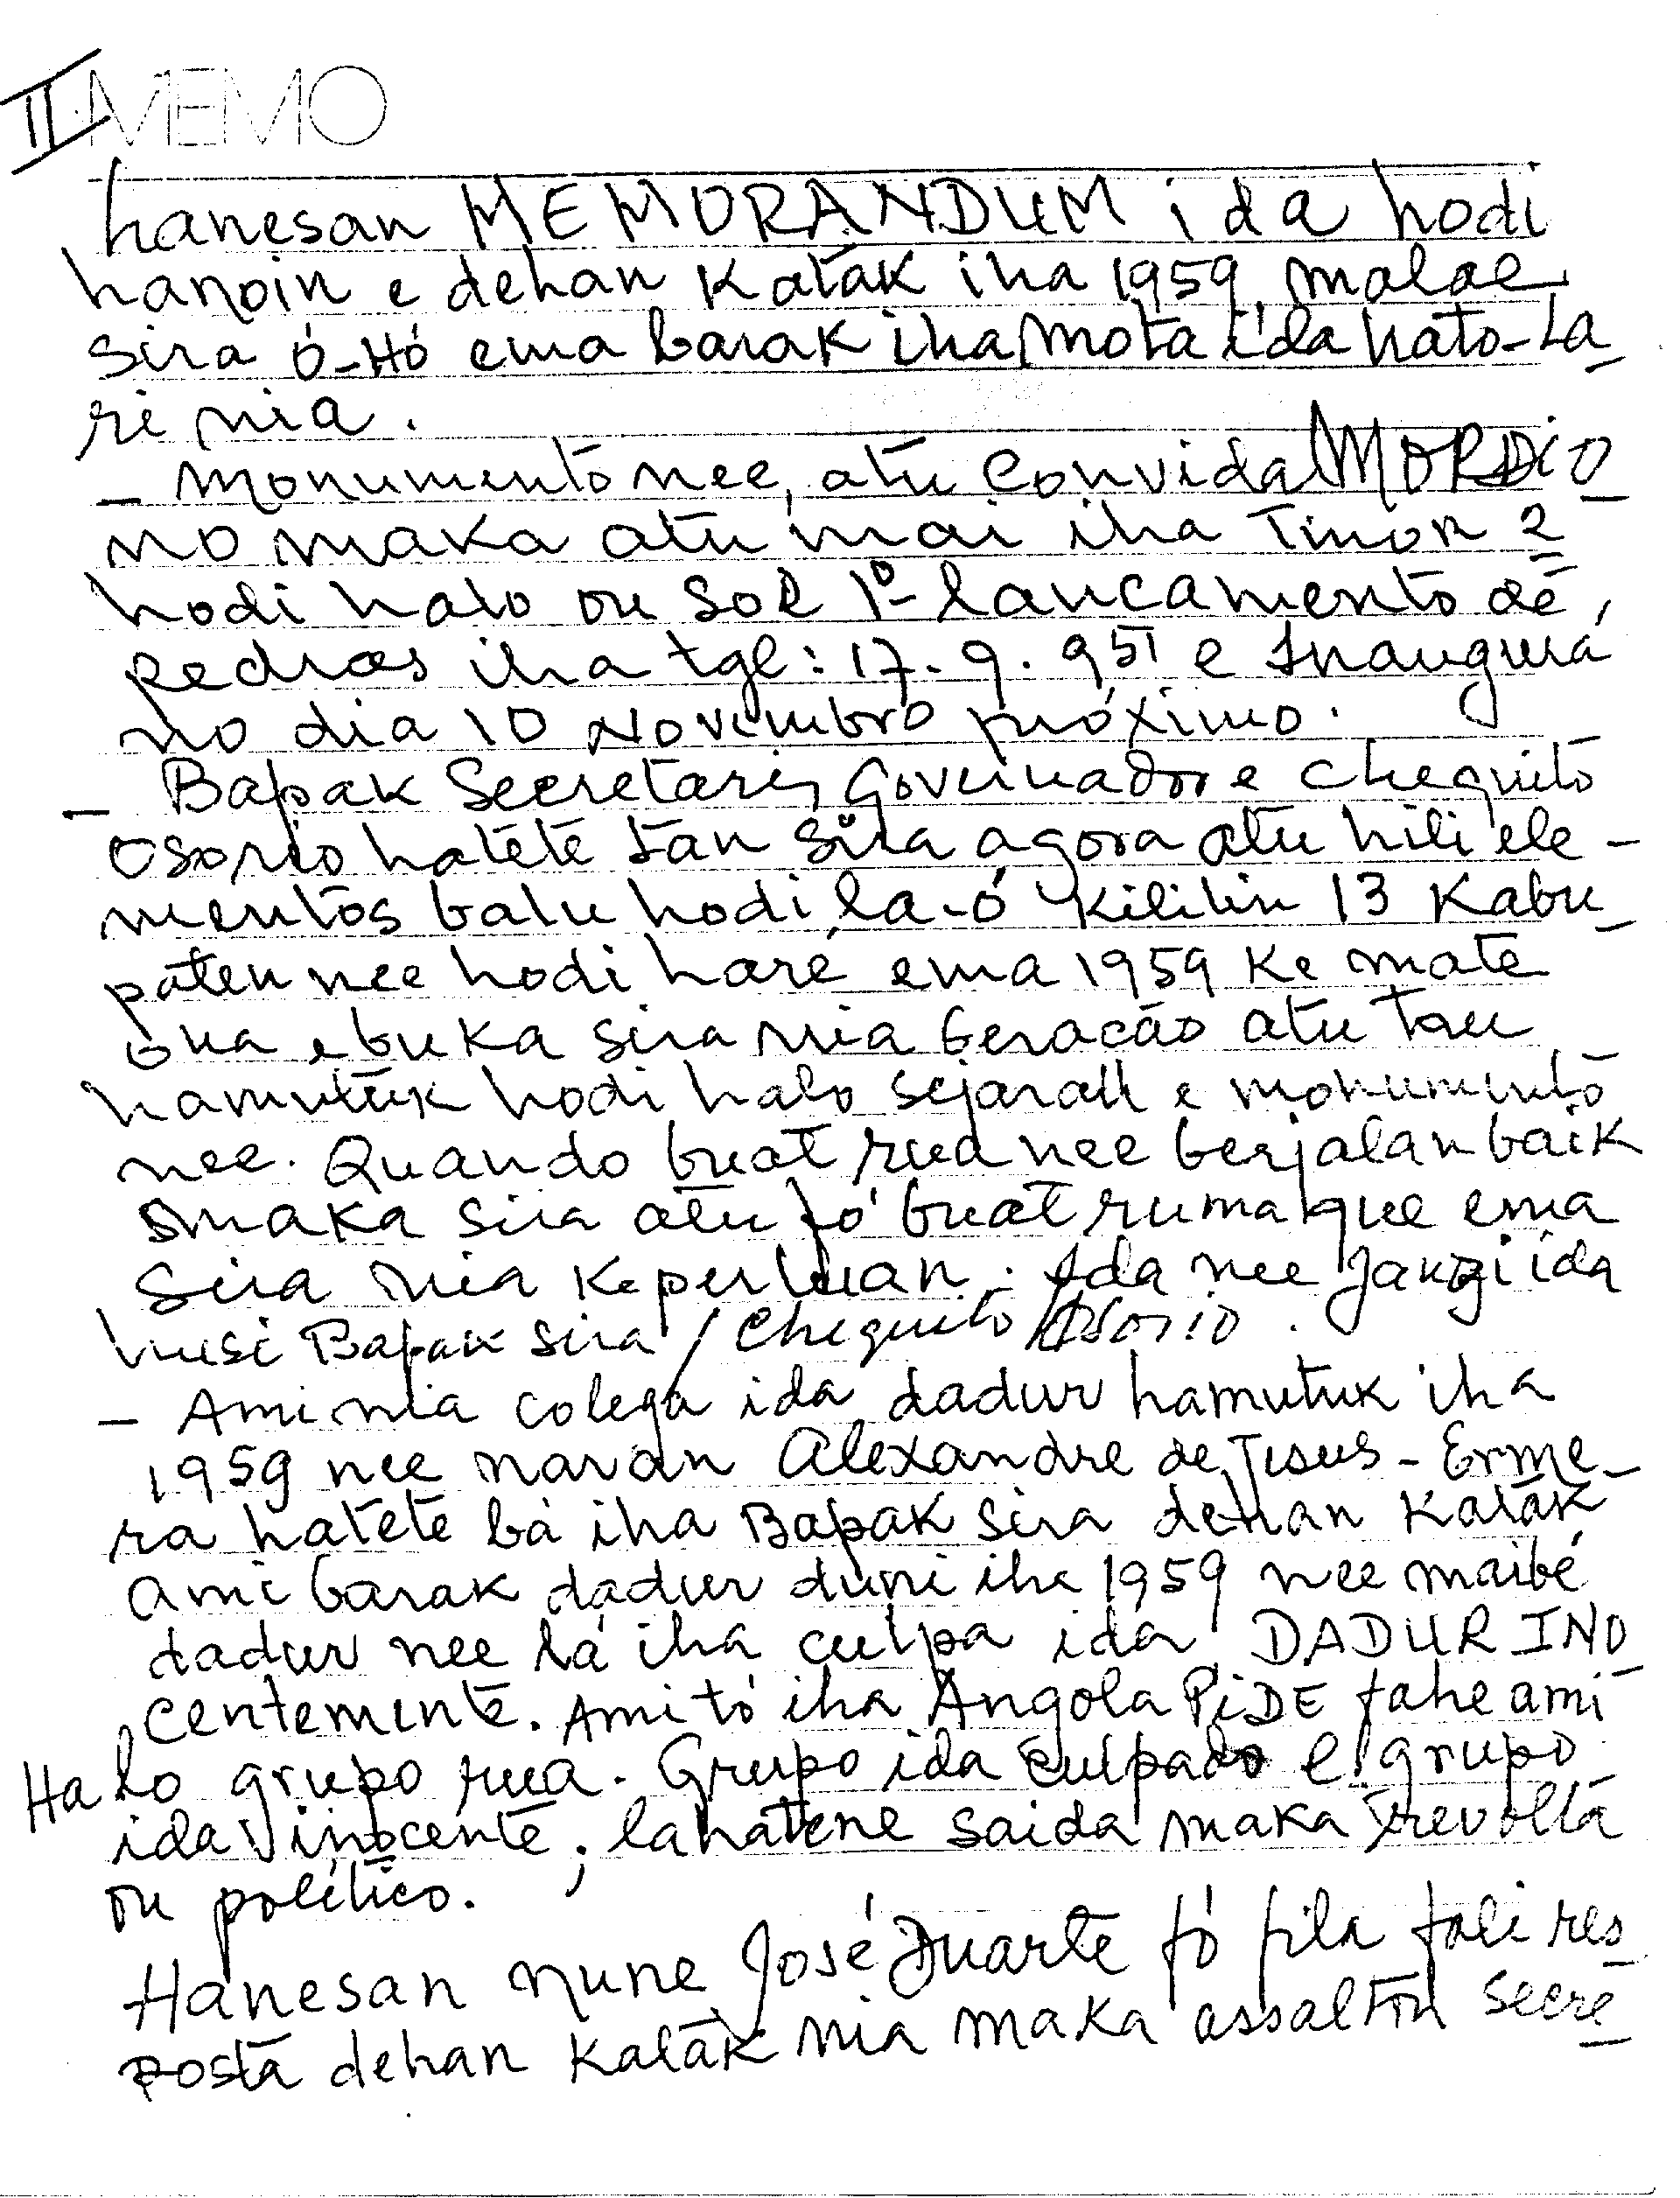 II MEMO
hanesan MEMORANDUM ida hodi
hanoin e dehan Katak iha 1959, malae
sira ó-Hó ema barak iha Mota ida hato-La
ri nia.
- Monumento nee, atu convida MORDIO
no maka atu mai iha Timor 2
hodi halo ou soe 1º lancamento de
pedras iha tgl: 17.9.951 e Inaugura
no dia 10 Novembro próximo.
- Bapak Secretari, Governador e chequito
Osorio hatete tan sira agora atu hili ele-
mentos balu hodi la-ó kililin 13 Kabu
paten nee hodi haré ema 1959 Ke mate
ona e buka sira nia Geracão atu tau
hamutuk hodi halo sejarah e monumento
nee. Quando buat rua nee berjalan baik
maka sira atu fó buat ruma que ema
sira nia Keperluan. Ida nee Janzi ida
husi Bapak sira / Chequito Osorio.
- Ami nia colega ida dadur hamutuk iha
1959 nee naran Alexandre de Jesus - Erme_
ra hatete ba iha Bapak sira dehan Katak
ami barak dadur duni iha 1959 nee maibé
dadur nee la iha culpa ida DADUR INO
centemente. Ami tó iha Angola PIDE fahe ami
Halo grupo rua. Grupo ida culpado e grupo
ida inocente; lahatene saida maka revolta
ou politico.
Hanesan nune José Duarte fó fila fali res
posta dehan Katak nia maka assaltou secre